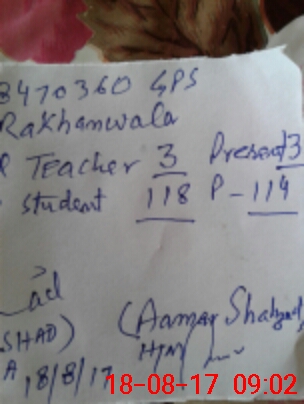 3470360 GPS
Rakhanwala
Teacher 3 Present 3
student 118 P-114
(Aamar Shahzad
SHAD)
HM
A 18/8/17
18-08-17 09:02